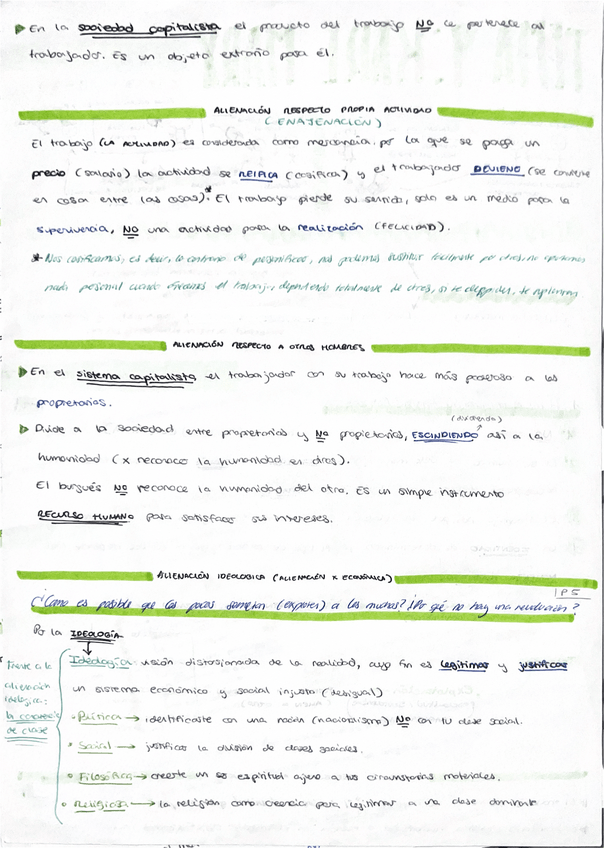 En la sociedad capitalista el producto del trabajo NO le pertenece al
trabajador. Es un objeto extraño para él.
ALIENACIÓN RESPECTO PROPIA ACTIVIDAD
(ENAJENACIÓN)
El trabajo (LA ACTIVIDAD) es considerada como mercancía, por la que se paga un
precio (salario) la actividad se REIFICA (cosifica) y el trabajador DEVIENE (se convierte
en cosa entre las cosas)*. El trabajo pierde su sentido, solo es un medio para la
supervivencia, NO una actividad para la realización (FELICIDAD).
* Nos cosificamos, es decir, lo contrario de personificar, nos podemos sustituir facilmente por otros, no aportamos
nada personal cuando el trabajo, dependiendo totalmente de otros, si te despiden, te
ALIENACIÓN RESPECTO A OTROS HOMBRES
En el sistema capitalista el trabajador con su trabajo hace más poderoso a los
propietarios.
(dividiendo)
Divide a la sociedad entre propietarios y No propietarios, ESCINDIENDO así a la
humanidad (x reconoce la humanidad en otros).
El burgués NO reconoce la humanidad del otro. Es un simple instrumento
RECURSO HUMANO para satisfacer sus intereses.
ALIENACIÓN IDEOLOGICA (ALIENACIÓN x ECONÓMICA)
IPS
¿Cómo es posible que los pocos sometan (exploten) a los muchos? ¿Por qué no hay una revolución?
Por la IDEOLOGÍA
Ideología: visión distorsionada de la realidad, cuyo fin es legitimar y justificar
un sistema económico y social injusto (desigual)
Frente a la
alienación
ideológica:
la conciencia
de clase
• Política → identificarte con una nación (nacionalismo) NO con tu clase social.
• Social → justificar la división de clases sociales.
• Filosófica → creerte un ser espiritual ajeno a tus circunstancias materiales.
• Religiosa → la religión como creencia para legitimar a una clase dominante